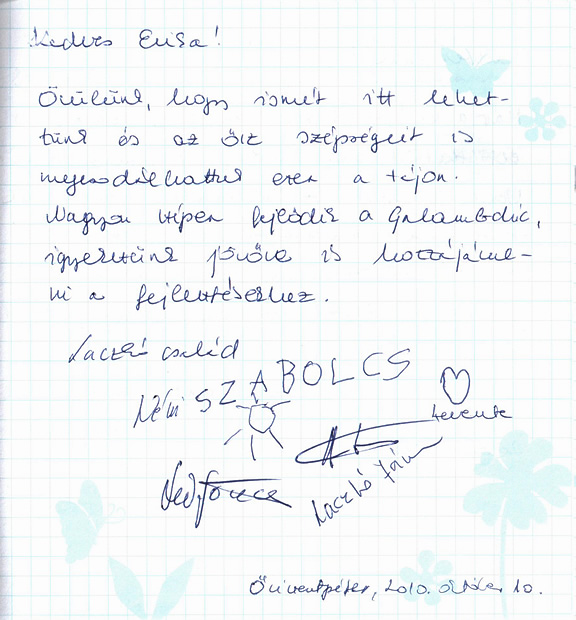 Kedves Erika!
Örülünk, hogy ismét itt lehet-
tünk és az ősz szépségeit is
megcsodálhattuk ezen a tájon.
Nagyon szépen fejlődik a Galambdúc,
igyekszünk jövőre is hozzájárul-
ni a fejlesztésekhez.
Laczkó család
Néni SZABOLCS
Levente
Laczkó János
Őriszentpéter, 2010. október 10.